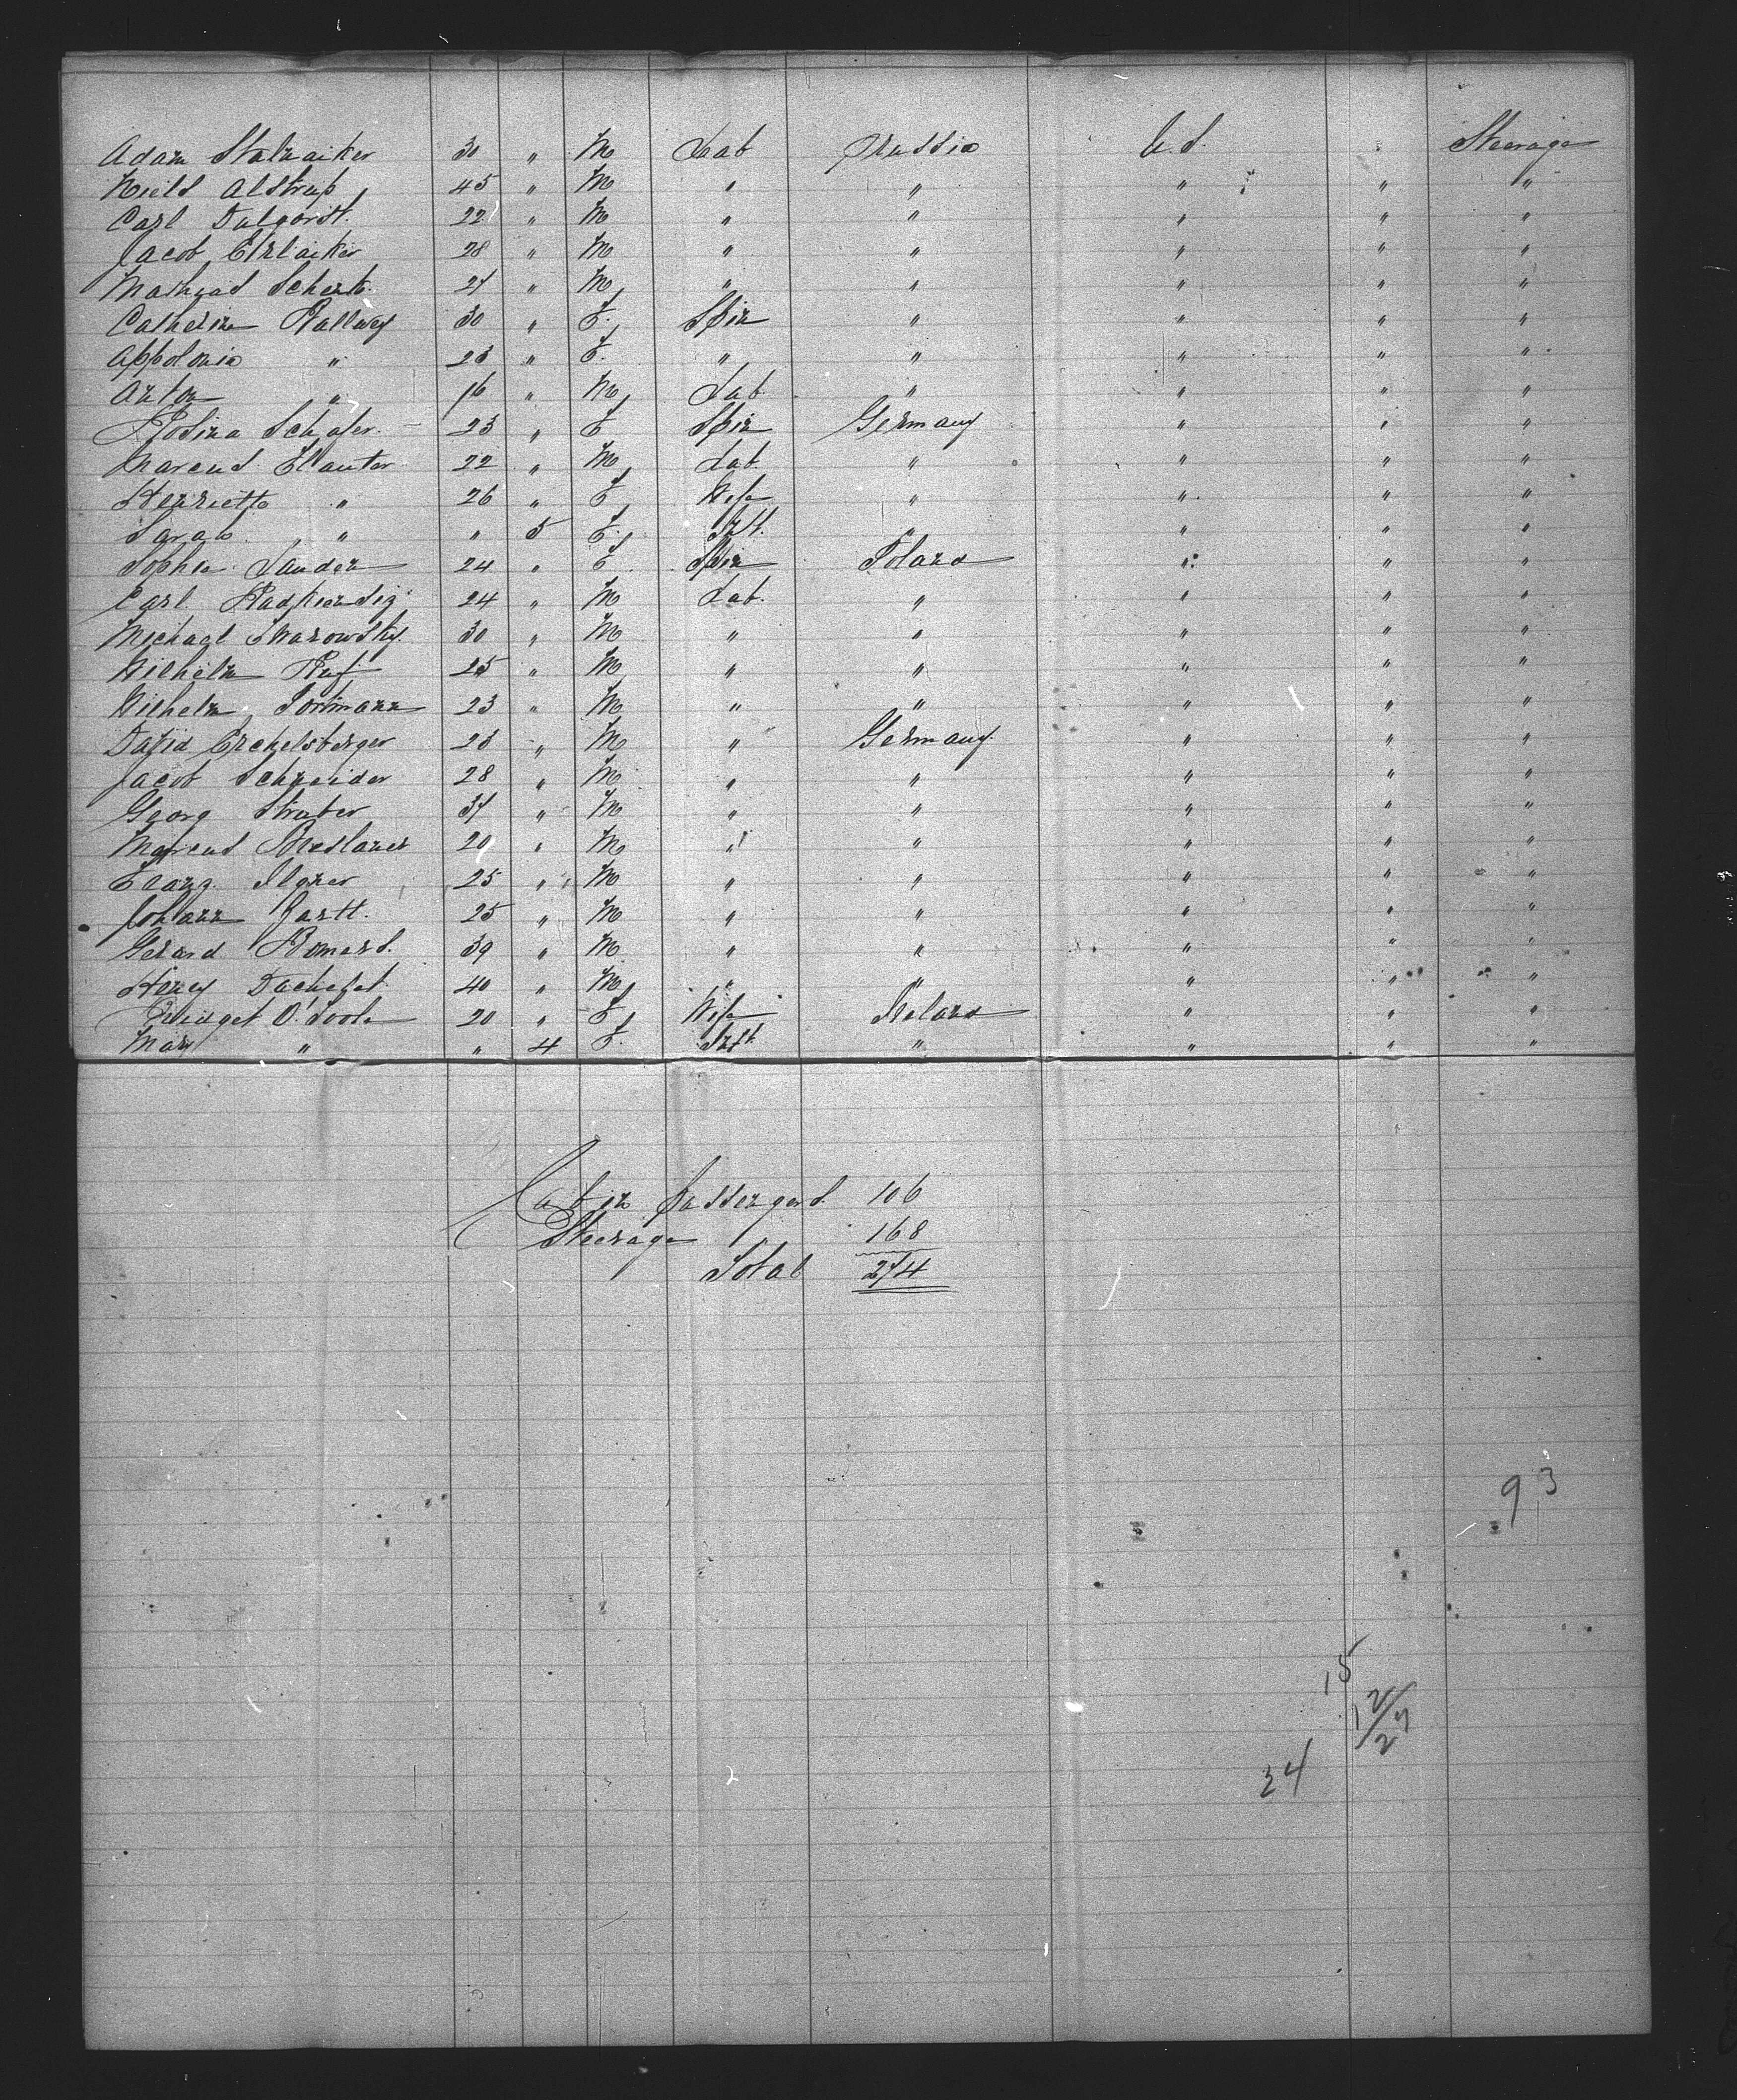 Adam Stalnaker 30 " M Lab Prussia U.S. " Steerage
Niels Alstrup 45 " M " " " " "
Carl Dalgordt. 22 " M " " " " "
Jacob 28 " M " " " " "
Mathias Schertz. 27 " M " " " " "
Catherina Hallwey 30 " F. Spin " " " "
Appolonia " 23 " F. " " " " "
Anton " 16 " M Lab " " " "
Rosina Schafer. 23 " F Spin Germany " " "
Marcus Elanter 22 " M Lab. " " " "
Henriette " 26 " F Wife " " " "
Sarah " " 5 F. Inft. " " " "
Sophia Sander 24 " F. Spin Poland " " "
Carl 24 " M Lab. " " " "
Michael 30 " M " " " " "
Wilhelm Ruf 25 " M " " " " "
Wilhelm Portmann 23 " M " " " " "
David Erchelsberger 23 " M " Germany. " " "
Jacob Schneider 28 " M " " " " "
Georg Struber 37 " M " " " " "
Marcus Breslauer 20 " M " " " " "
Franz. Ilgner 25 " M " " " " "
Johann Gartt. 25 " M " " " " "
Gerard Romers. 39 " M " " " " "
Henry Dachefet 40 " M " " " " "
Bridget O'Toole 20 " F Wife Ireland " " "
Mary " " 4 F. Inft " " " "
Cabin passengers. 106
Steerage 168
Total 274
93
15
12/27
34